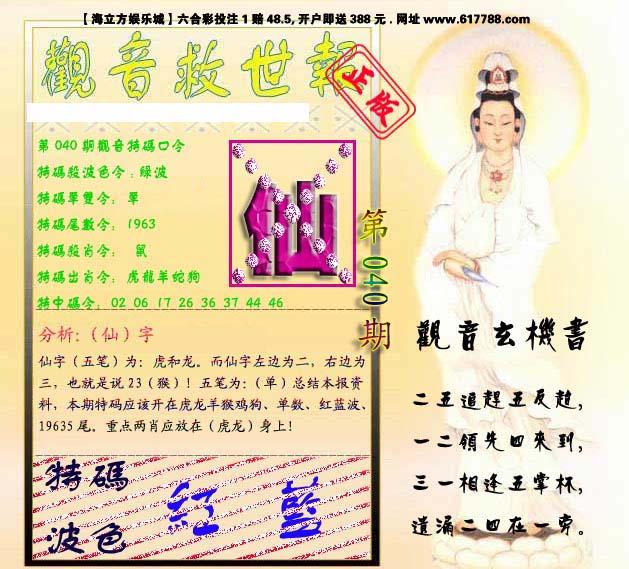 【海立方娱乐城】六合彩投注1赔48.5,开户即送388元.网址www.617788.com
觀音救世報
正版
第040期觀音特碼口令
特碼殺波色令:綠波
特碼單雙令: 單
特碼尾數令: 1963
特碼殺肖令: 鼠
特碼出肖令: 虎龍羊蛇狗
特中碼令: 02 06 17 26 36 37 44 46
仙
第040期
分析:(仙)字
仙字(五笔)为:虎和龙。而仙字左边为二,右边为
三,也就是说23(猴)!五笔为:(单)总结本报资
料,本期特码应该开在虎龙羊猴鸡狗、单数、红蓝波、
19635尾。重点两肖应放在(虎龙)身上!
特碼
波色
紅 藍
觀音玄機書
二五追趕五反超,
一二領先四來到,
三一相逢五掌杯,
遺漏二四在一旁。